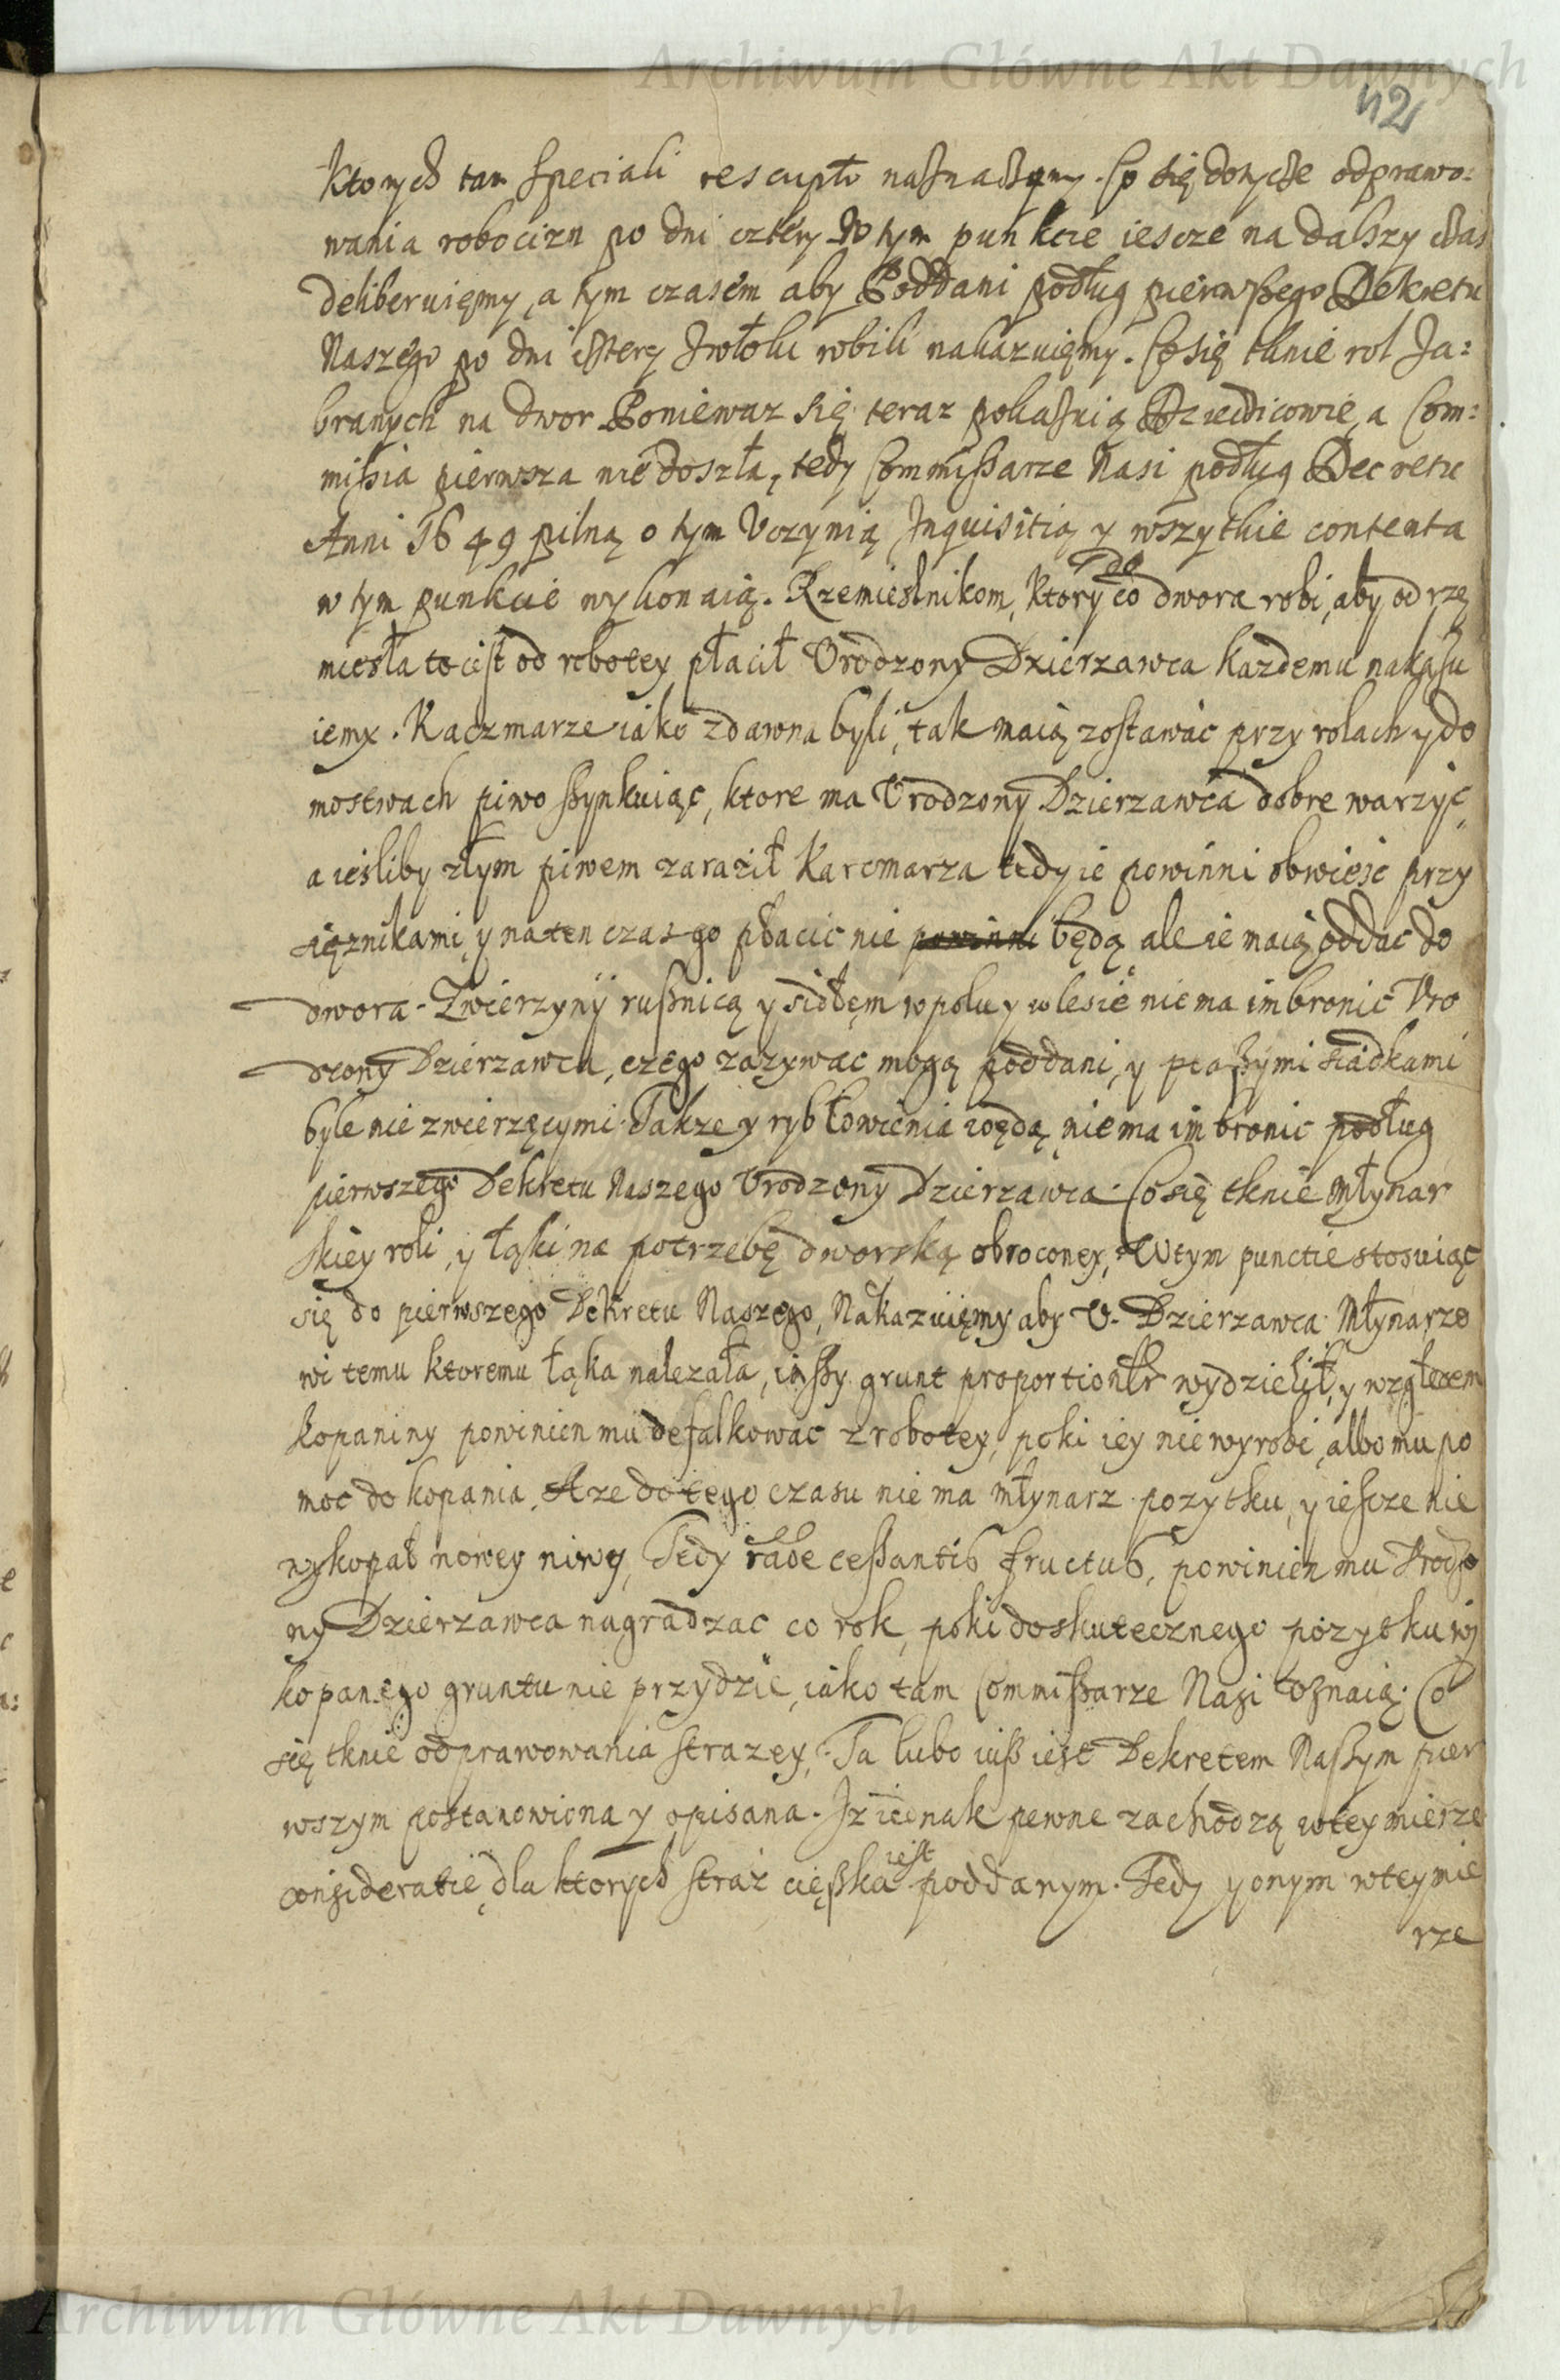 Archiwum Główne Akt Dawnych
42
Ktorych tam speciali rescripto naznaczymy. Co się dotycze odprawo:
wania robocizn po dni cztery W tym punkcie iescze na dalszy czas
deliberuięmy, a tym czasem aby Poddani podług pierwszego Dekretu
Naszego po dni cztery Zwłoki robili nakazuięmy. Co się tknie rol Za:
branych na dwor Poniewaz się teraz pokazuią Dziedicowie, a Com:
missia pierwsza nie doszła, tedy Commissarze Nasi podług Decretu
Anni 1649 pilną o tym Uczynią Inquisitią y wszytkie contenta
w tym punkcie wykonaią. Rzemieslnikom, Ktory co do dwora robi, aby od rze
miesła to iest od robotey płacił Urodzony Dzierzawca kazdemu nakazu
iemy. Kaczmarze iako zdawna byli, tak maią zostawac przy rolach y do
mostwach piwo szynkuiąc, ktore ma Urodzony Dzierzawca dobre warzyc,
a iesliby złym piwem zaraził Karcmarza tedy ie powinni obwiesc przy
siężnikami, y na ten czas go płacic nie powinni będą ale ie maią oddac do
dwora. Zwierzyny rusznicą y sidłęm w polu y w lesie nie ma im bronic Uro
dzony Dzierzawca, czego zazywac mogą poddani, y ptaszymi siadkami
byle nie zwierzęcymi. Takze y ryb łowienia wędą nie ma im bronic podług
pierwszego Dekretu Naszego Urodzony Dzierzawca. Co się tknie Młynar
skiey roli, y łąki na potrzebę dworską obroconey, W tym punctie stosuiąc
się do pierwszego Dekretu Naszego, Nakazuięmy aby U. Dzierzawca Młynarzo
wi temu ktoremu łąka nalezała, inszy grunt proportionlr wydzielił, y względem
kopaniny powinien mu defalkowac z robotey, poki iey nie wyrobi, albo mu po
moc do kopania. A ze do tego czasu nie ma młynarz pozytku, y iescze nie
wykopał nowey niwy, Tedy raoe cessantis fructus, powinien mu Urodzo
ny Dzierzawca nagradzac co rok, poki do skutecznego pozytku wy
kopanego gruntu nie przydzie, iako tam Commissarze Nasi uznaią. Co
się tknie odprawowania strazey, Ta lubo iusz iest Dekretem Naszym pier
wszym postanowiona y opisana. Iz iednak pewne zachodzą w tey mierze
consideratie, dla ktorych straz cięszka iest poddanym. Tedy y onym w tey mie
rze
Archiwum Główne Akt Dawnych